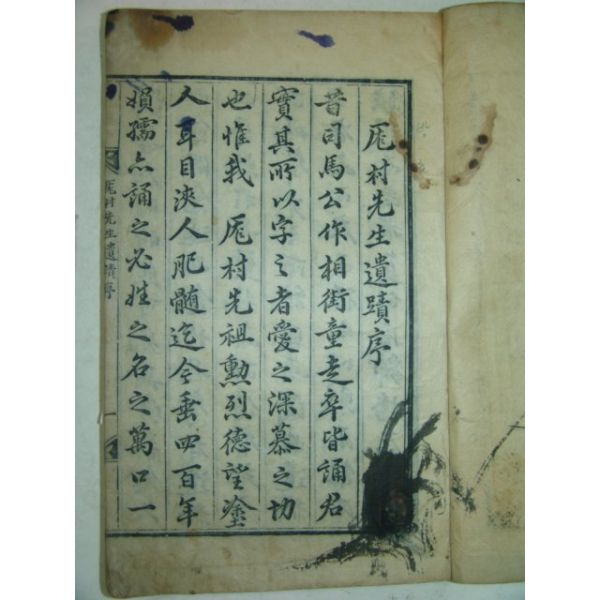 厖村先生遺蹟序
昔司馬公作相街童走卒皆誦君
實其所以字之者愛之深慕之切
也惟我 厖村先祖勳烈德望塗
人耳目浹人肥髓迄今垂四百年
娟孺亦誦之必姓之名之萬口一
厖村先生遺蹟序 一